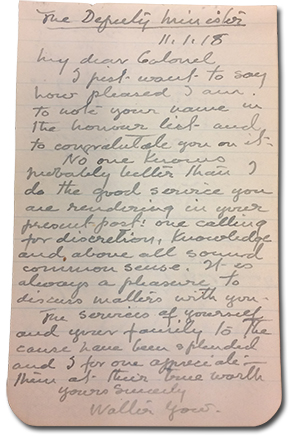 The Deputy Minister
11.1.18
My dear Colonel
I just want to say
how pleased I am
to note your name in
the honour list and
to congratulate you on it.
No one knows
probably better than I
do the good service you
are rendering in your
present post: one calling
for discretion, knowledge
and above all sound
common sense. It is
always a pleasure to
discuss matters with you.
The services of yourself
and your family to the
cause have been splendid
and I for one appreciate
them at their true worth
yours sincerely
Walter Gow.